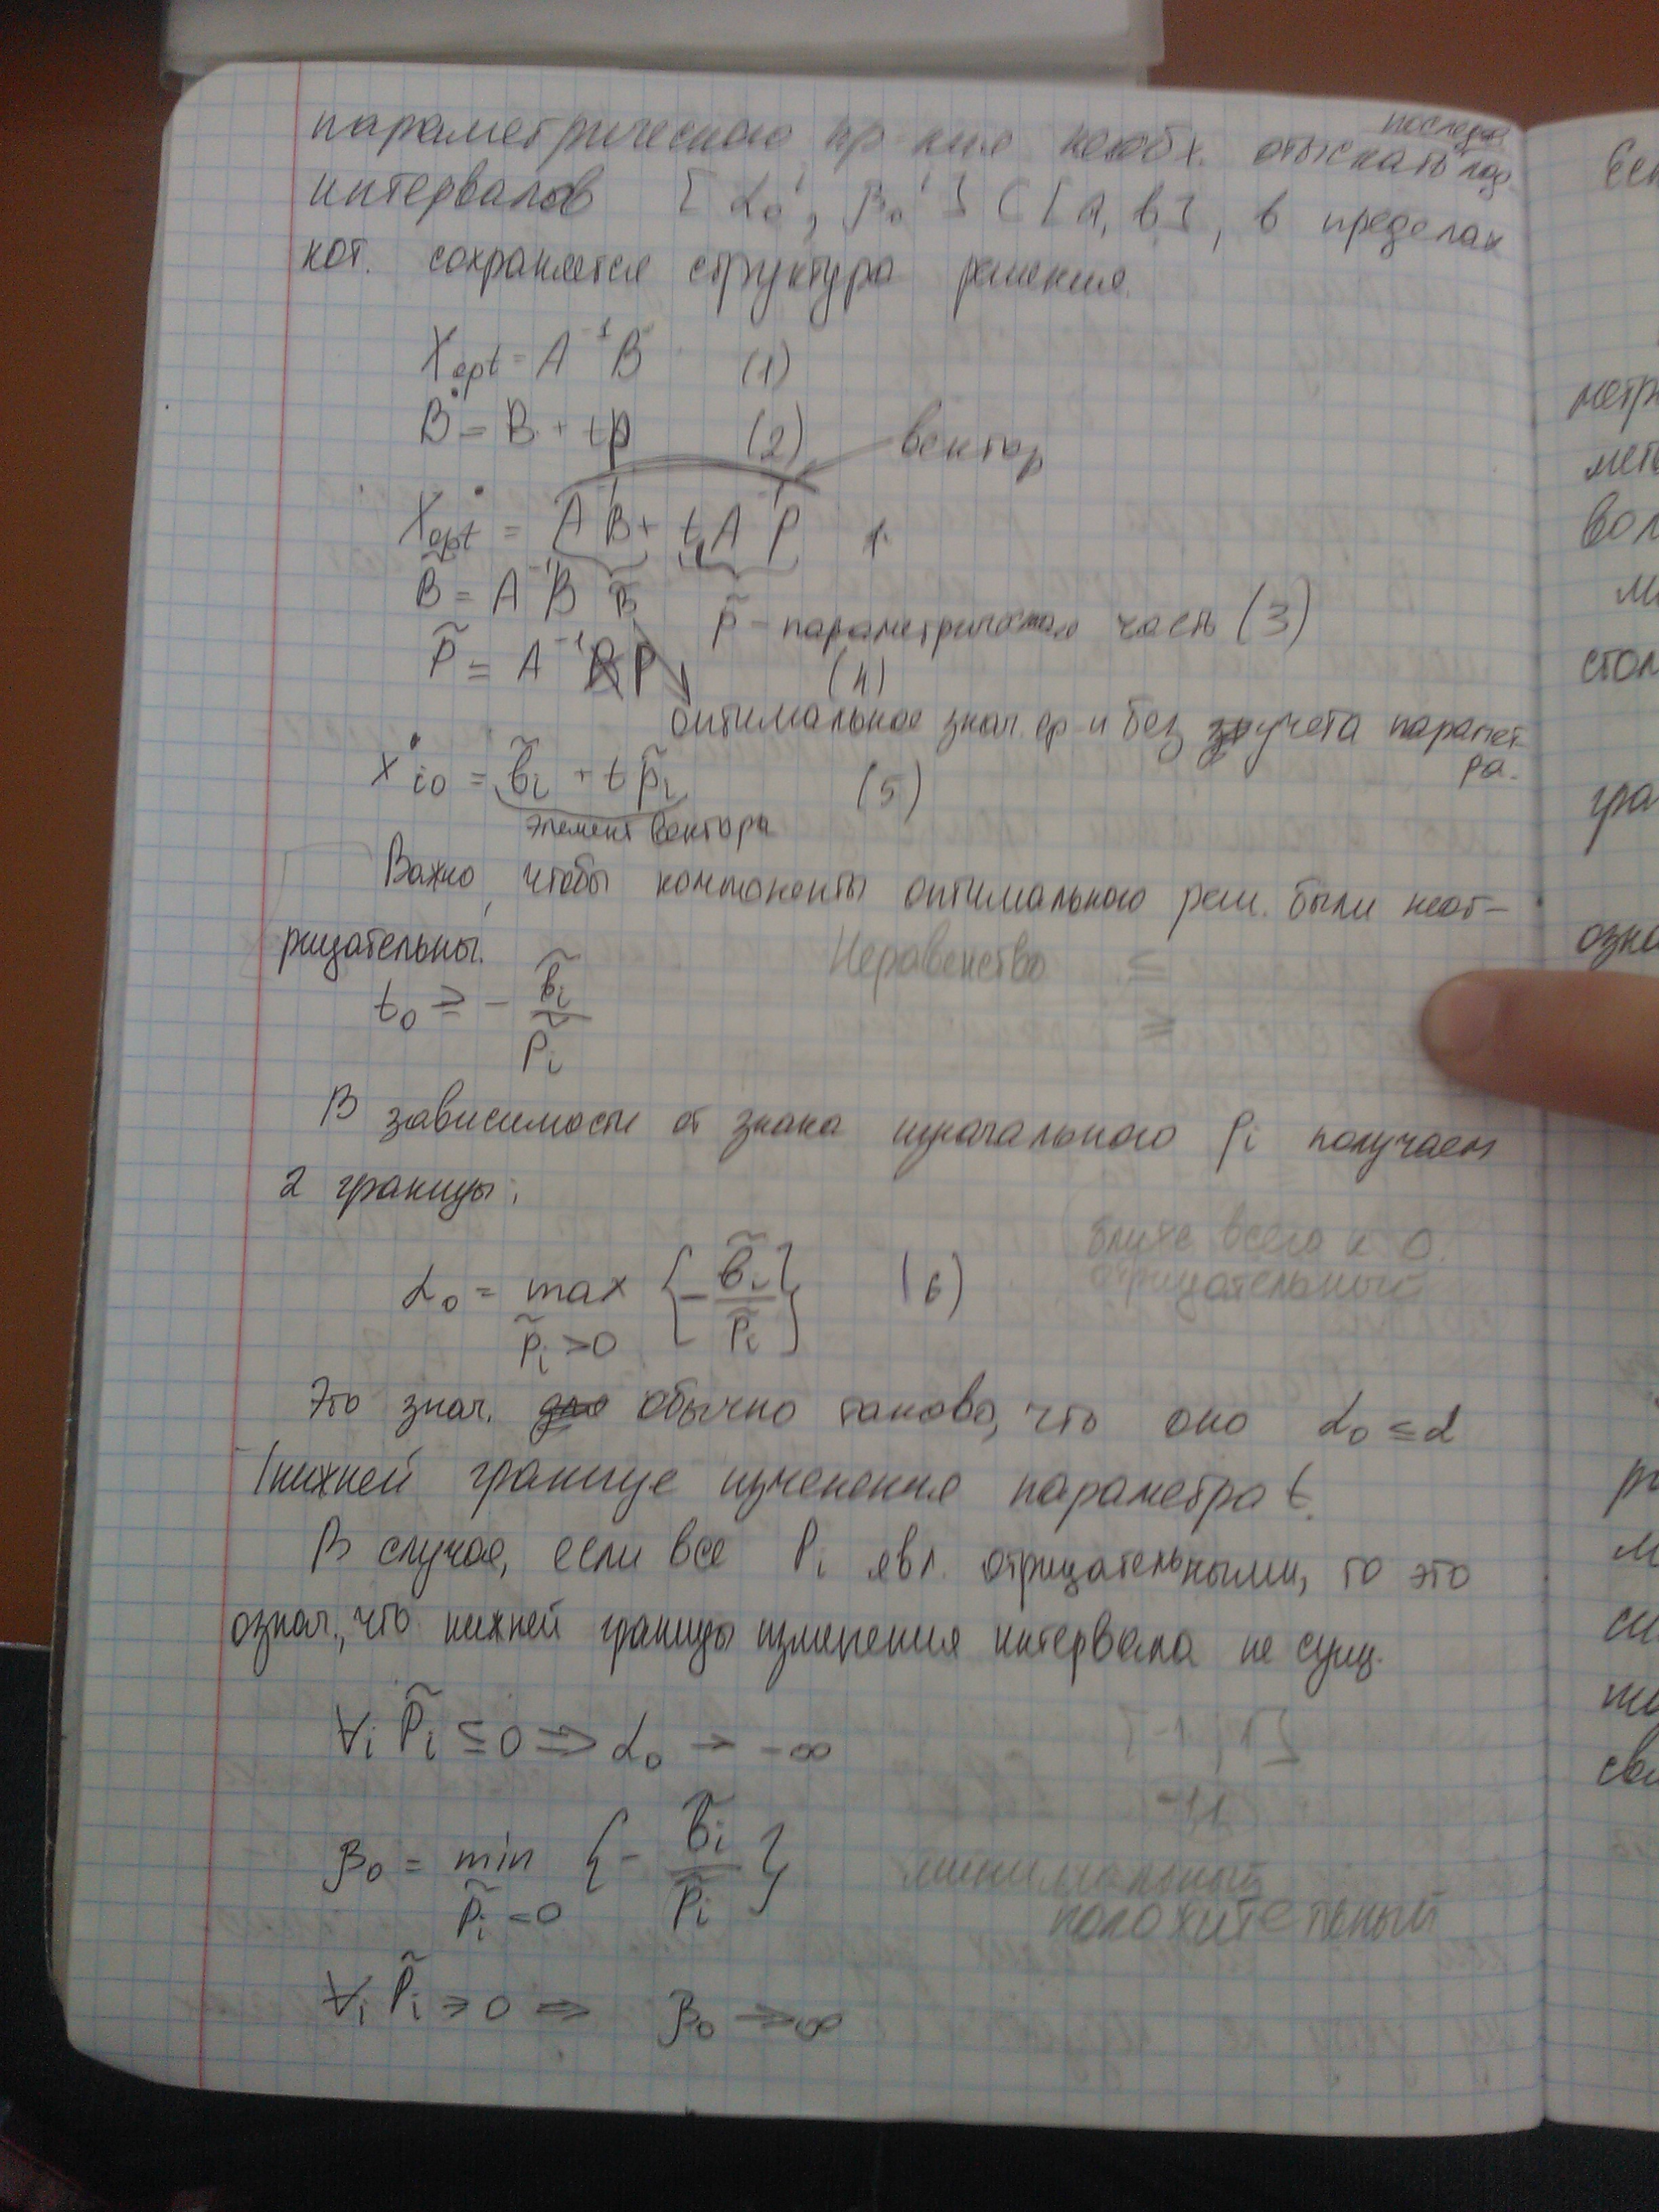 последов.
параметрического пр-ния необх. отыскать под-
интервалов [α₀', β₀'] ⊂ [a, b], в пределах
кот. сохраняется структура решения.
Xopt = A⁻¹B (1)
Ḃ = B + tp (2) вектор
Ẋopt = A⁻¹B + tA⁻¹P
B̃ = A⁻¹B B̃
p̃ – параметрическая часть (3)
P̃ = A⁻¹P (4)
оптимальное знач. ф-и без учёта парамет-
ра.
ẋi0 = b̃i + t p̃i (5)
элемент вектора
Важно, чтобы компоненты оптимального реш. были неот-
рицательны.
Неравенство ≤
≤
t₀ ≥ - b̃i / p̃i
В зависимости от знака изначального pi получаем
2 границы:
ближе всего к 0.
отрицательный
α₀ = max {- b̃i / p̃i} (6)
p̃i > 0
Это знач. обычно таково, что оно α₀ ≤ α
(нижней границе изменения параметра t.
В случае, если все Pi явл. отрицательными, то это
означ., что нижней границы изменения интервала не сущ.
∀i P̃i ≤ 0 ⇒ α₀ → -∞
β₀ = min {- b̃i / p̃i}
p̃i < 0
минимальный
положительный
∀i P̃i ≥ 0 ⇒ β₀ → ∞